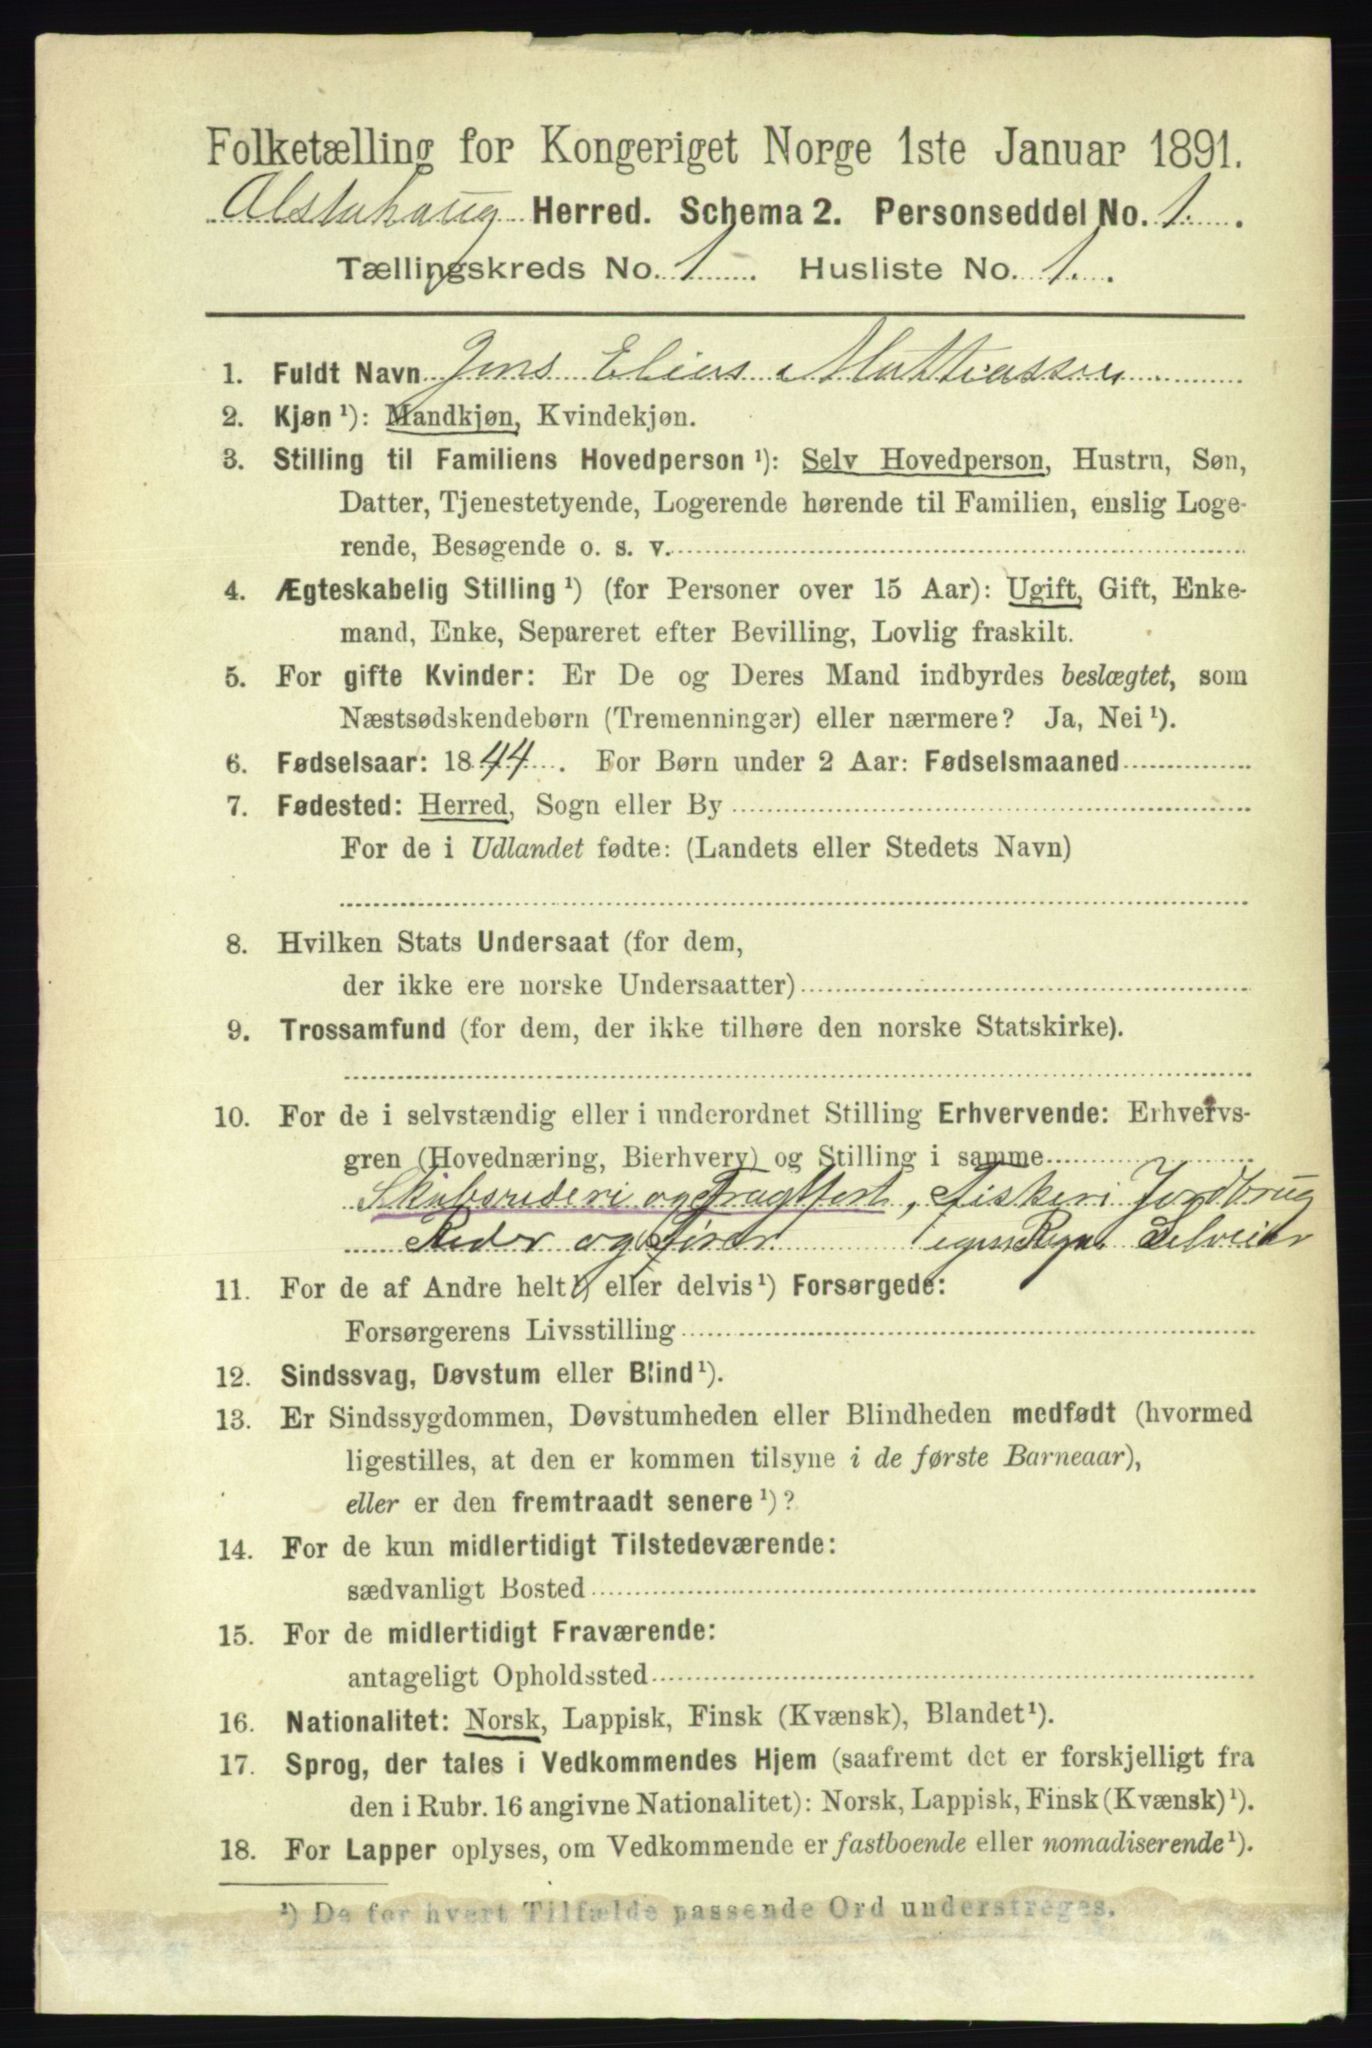 Folketælling for Kongeriget Norge 1ste Januar 1891.
Alstahaug Herred. Schema 2. Personseddel No. 1.
Tællingskreds No. 1. Husliste No. 1.
1. Fuldt Navn Jens Elias Mathiassen
2. Kjøn ¹): Mandkjøn, Kvindekjøn.
3. Stilling til Familiens Hovedperson ¹): Selv Hovedperson, Hustru, Søn,
Datter, Tjenestetyende, Logerende hørende til Familien, enslig Loge-
rende, Besøgende o. s. v.
4. Ægteskabelig Stilling ¹) (for Personer over 15 Aar): Ugift, Gift, Enke-
mand, Enke, Separeret efter Bevilling, Lovlig fraskilt.
5. For gifte Kvinder: Er De og Deres Mand indbyrdes beslægtet, som
Næstsødskendebørn (Tremenninger) eller nærmere? Ja, Nei ¹).
6. Fødselsaar: 1844. For Børn under 2 Aar: Fødselsmaaned
7. Fødested: Herred, Sogn eller By
For de i Udlandet fødte: (Landets eller Stedets Navn)
8. Hvilken Stats Undersaat (for dem,
der ikke ere norske Undersaatter)
9. Trossamfund (for dem, der ikke tilhøre den norske Statskirke).
10. For de i selvstændig eller i underordnet Stilling Erhvervende: Erhvervs-
gren (Hovednæring, Bierhverv) og Stilling i samme
Skibsrederi og Fragtfart, Fiskeri Jordbrug
Reder og Fører egen Regn. Selveier
11. For de af Andre helt ¹) eller delvis ¹) Forsørgede:
Forsørgerens Livsstilling
12. Sindssvag, Døvstum eller Blind ¹).
13. Er Sindssygdommen, Døvstumheden eller Blindheden medfødt (hvormed
ligestilles, at den er kommen tilsyne i de første Barneaar),
eller er den fremtraadt senere ¹)?
14. For de kun midlertidigt Tilstedeværende:
sædvanligt Bosted
15. For de midlertidigt Fraværende:
antageligt Opholdssted
16. Nationalitet: Norsk, Lappisk, Finsk (Kvænsk), Blandet ¹).
17. Sprog, der tales i Vedkommendes Hjem (saafremt det er forskjelligt fra
den i Rubr. 16 angivne Nationalitet): Norsk, Lappisk, Finsk (Kvænsk) ¹).
18. For Lapper oplyses, om Vedkommende er fastboende eller nomadiserende ¹).
¹) De for hvert Tilfælde passende Ord understreges.